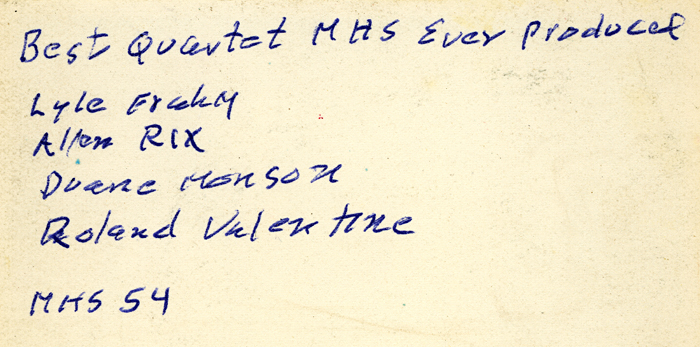 Best Quartet MHS Ever Produced
Lyle
Allen RIX
Duane Monson
Roland Valentine
MHS 54